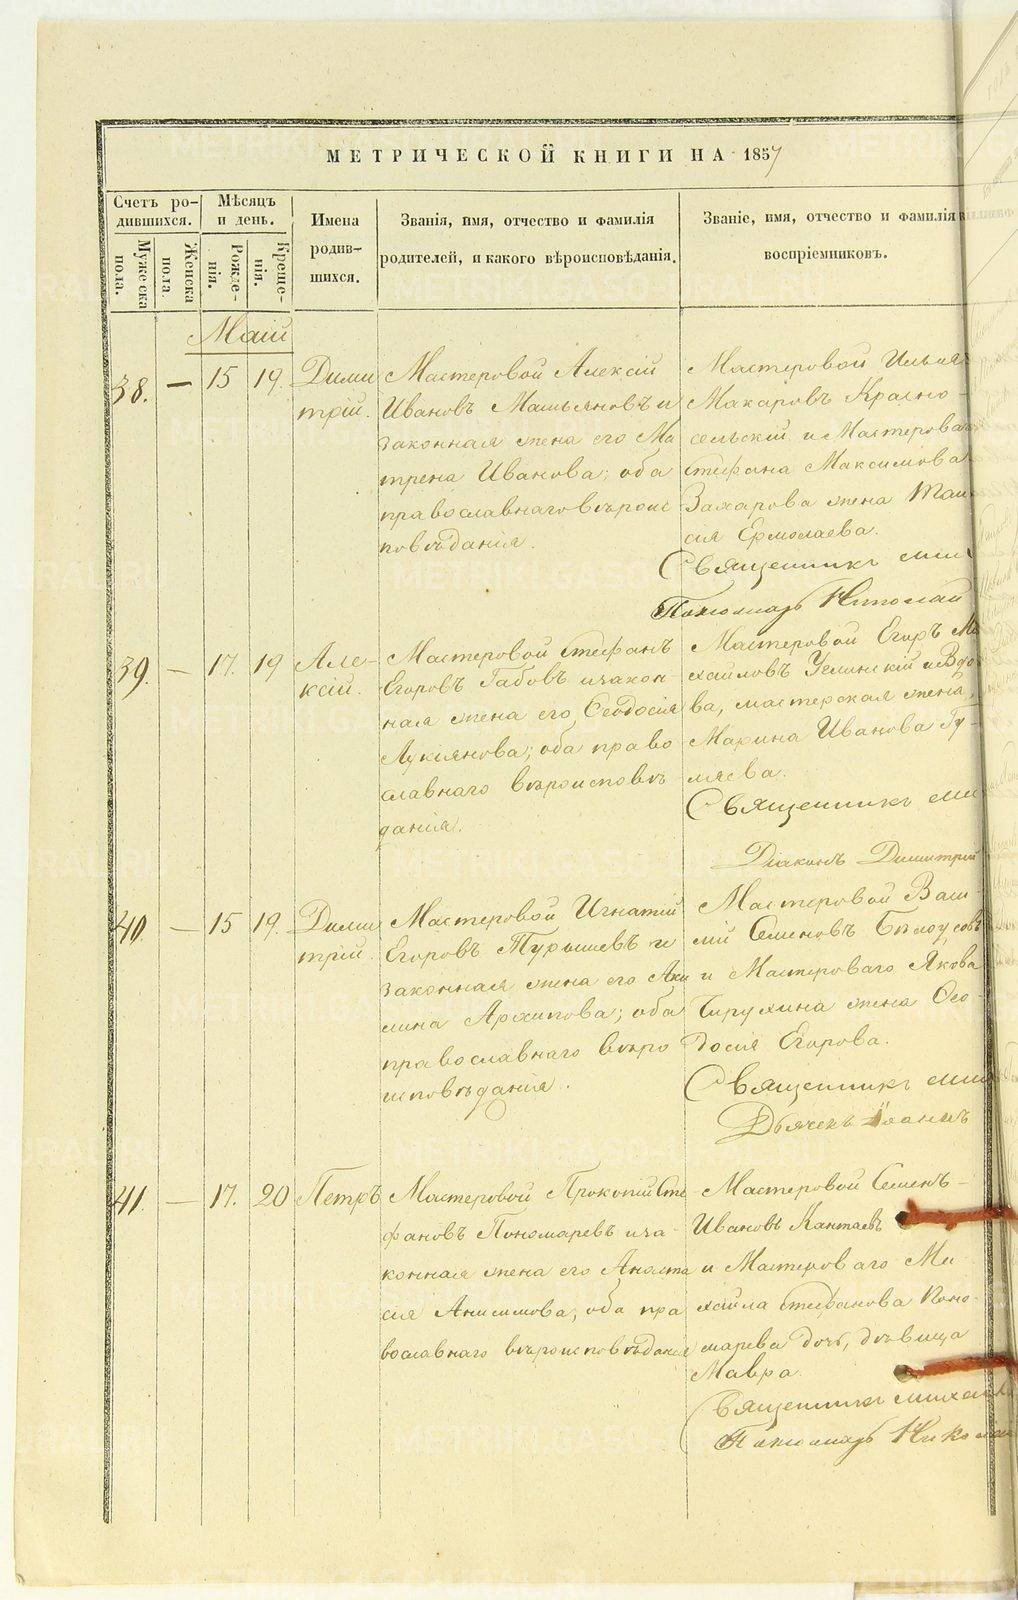 МЕТРИЧЕСКОЙ КНИГИ НА 1857
Счетъ ро-
дившихся.
Мужеска
пола.
Женска
пола.
Мѣсяцъ
и день.
Рожде-
нія.
Креще-
нія.
Имена
родив-
шихся.
Званія, имя, отчество и фамилія
родителей, и какого вѣроисповѣданія.
Званіе, имя, отчество и фамилія
воспріемниковъ.
Маій
38. — 15 19.
Дими
трій.
Мастеровой Алексій
Ивановъ и
законная жена его Ма
трена Иванова; оба
православнаго вѣроис
повѣданія.
Мастеровой Илья
Макаровъ Красно-
сельскій и Мастерова
Стефана Максимова
Захарова жена Таи
сія Ермолаева.
Священникъ Ми
Пономарь Николай
39. — 17. 19
Але-
ксій.
Мастеровой Стефанъ
Егоровъ Габовъ и закон
ная жена его Ѳеодосія
Лукіянова; оба право
славнаго вѣроисповѣ
данія.
Мастеровой Егоръ Ми
хайловъ и Вдо
ва, мастерская жена,
Марина Иванова Гу-
ляева.
Священникъ Ми
Діаконъ Димитрій
40. — 15 19.
Дими
трій.
Мастеровой Игнатій
Егоровъ Турышевъ и
законная жена его Аки
лина Архипова; оба
православнаго вѣро
исповѣданія.
Мастеровой Васи-
лій Семеновъ Бѣлоусовъ
и Мастероваго Якова
Чирухина жена Ѳео-
досія Егорова.
Священникъ Ми
Дьячекъ Іоаннъ
41. — 17. 20
Петръ
Мастеровой Прокопій Сте
фановъ Пономаревъ и за-
конная жена его Анаста
сія Анисимова, оба пра
вославнаго вѣроисповѣданія
Мастеровой Семенъ-
Ивановъ Кантаевъ
и Мастероваго Ми-
хайла Стефанова Поно-
марева дочь, дѣвица
Мавра.
Священникъ Михаи
Пономарь Николай